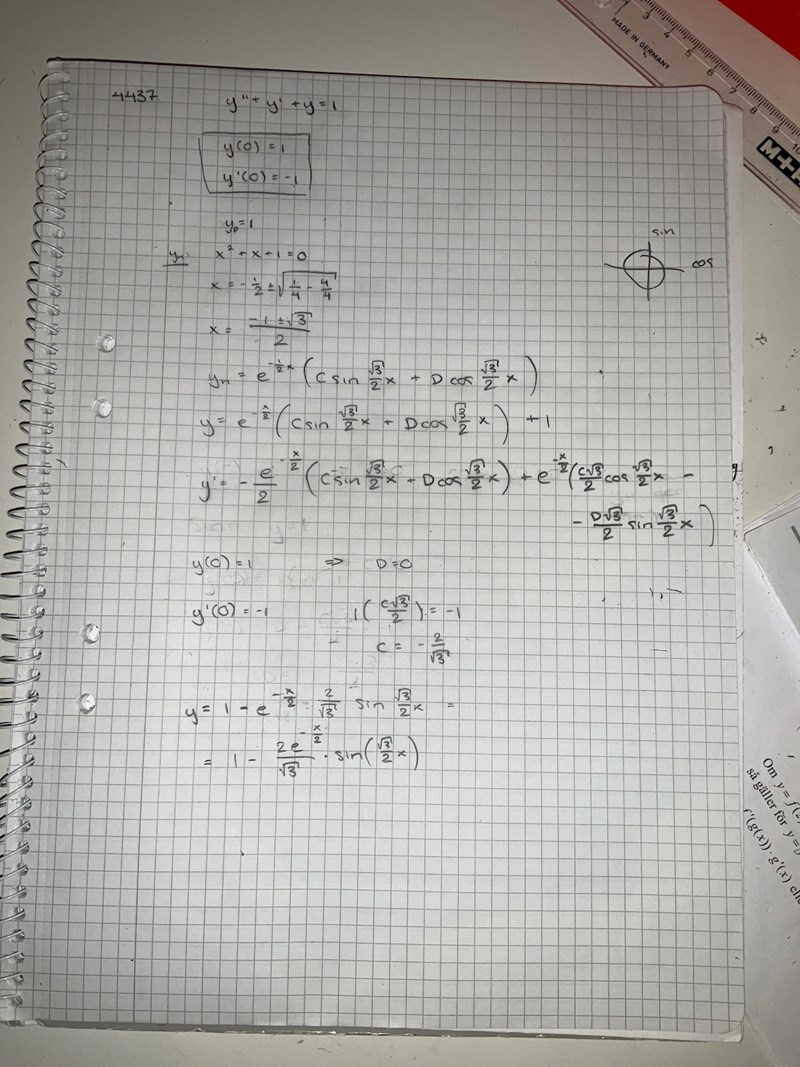 4437
y'' + y' + y = 1
y(0) = 1
y'(0) = -1
y_p = 1
y_h: x² + x + 1 = 0
x = -1/2 ± √(1/4 - 4/4)
x = (-1 ± √3)/2
y_h = e^(-1/2 x) (C sin √3/2 x + D cos √3/2 x)
y = e^(-x/2) (C sin √3/2 x + D cos √3/2 x) + 1
y' = - e^(-x/2)/2 (C sin √3/2 x + D cos √3/2 x) + e^(-x/2) (C√3/2 cos √3/2 x -
- D√3/2 sin √3/2 x)
y(0) = 1 ⇒ D = 0
y'(0) = -1 1(C√3/2) = -1
C = - 2/√3
y = 1 - e^(-x/2) · 2/√3 sin √3/2 x =
= 1 - 2e^(-x/2)/√3 · sin(√3/2 x)
sin
cos
MADE IN GERMANY
3 4 5 6 7 8 9 10
Om y = f(
så gäller för y =
f'(g(x)) · g'(x)